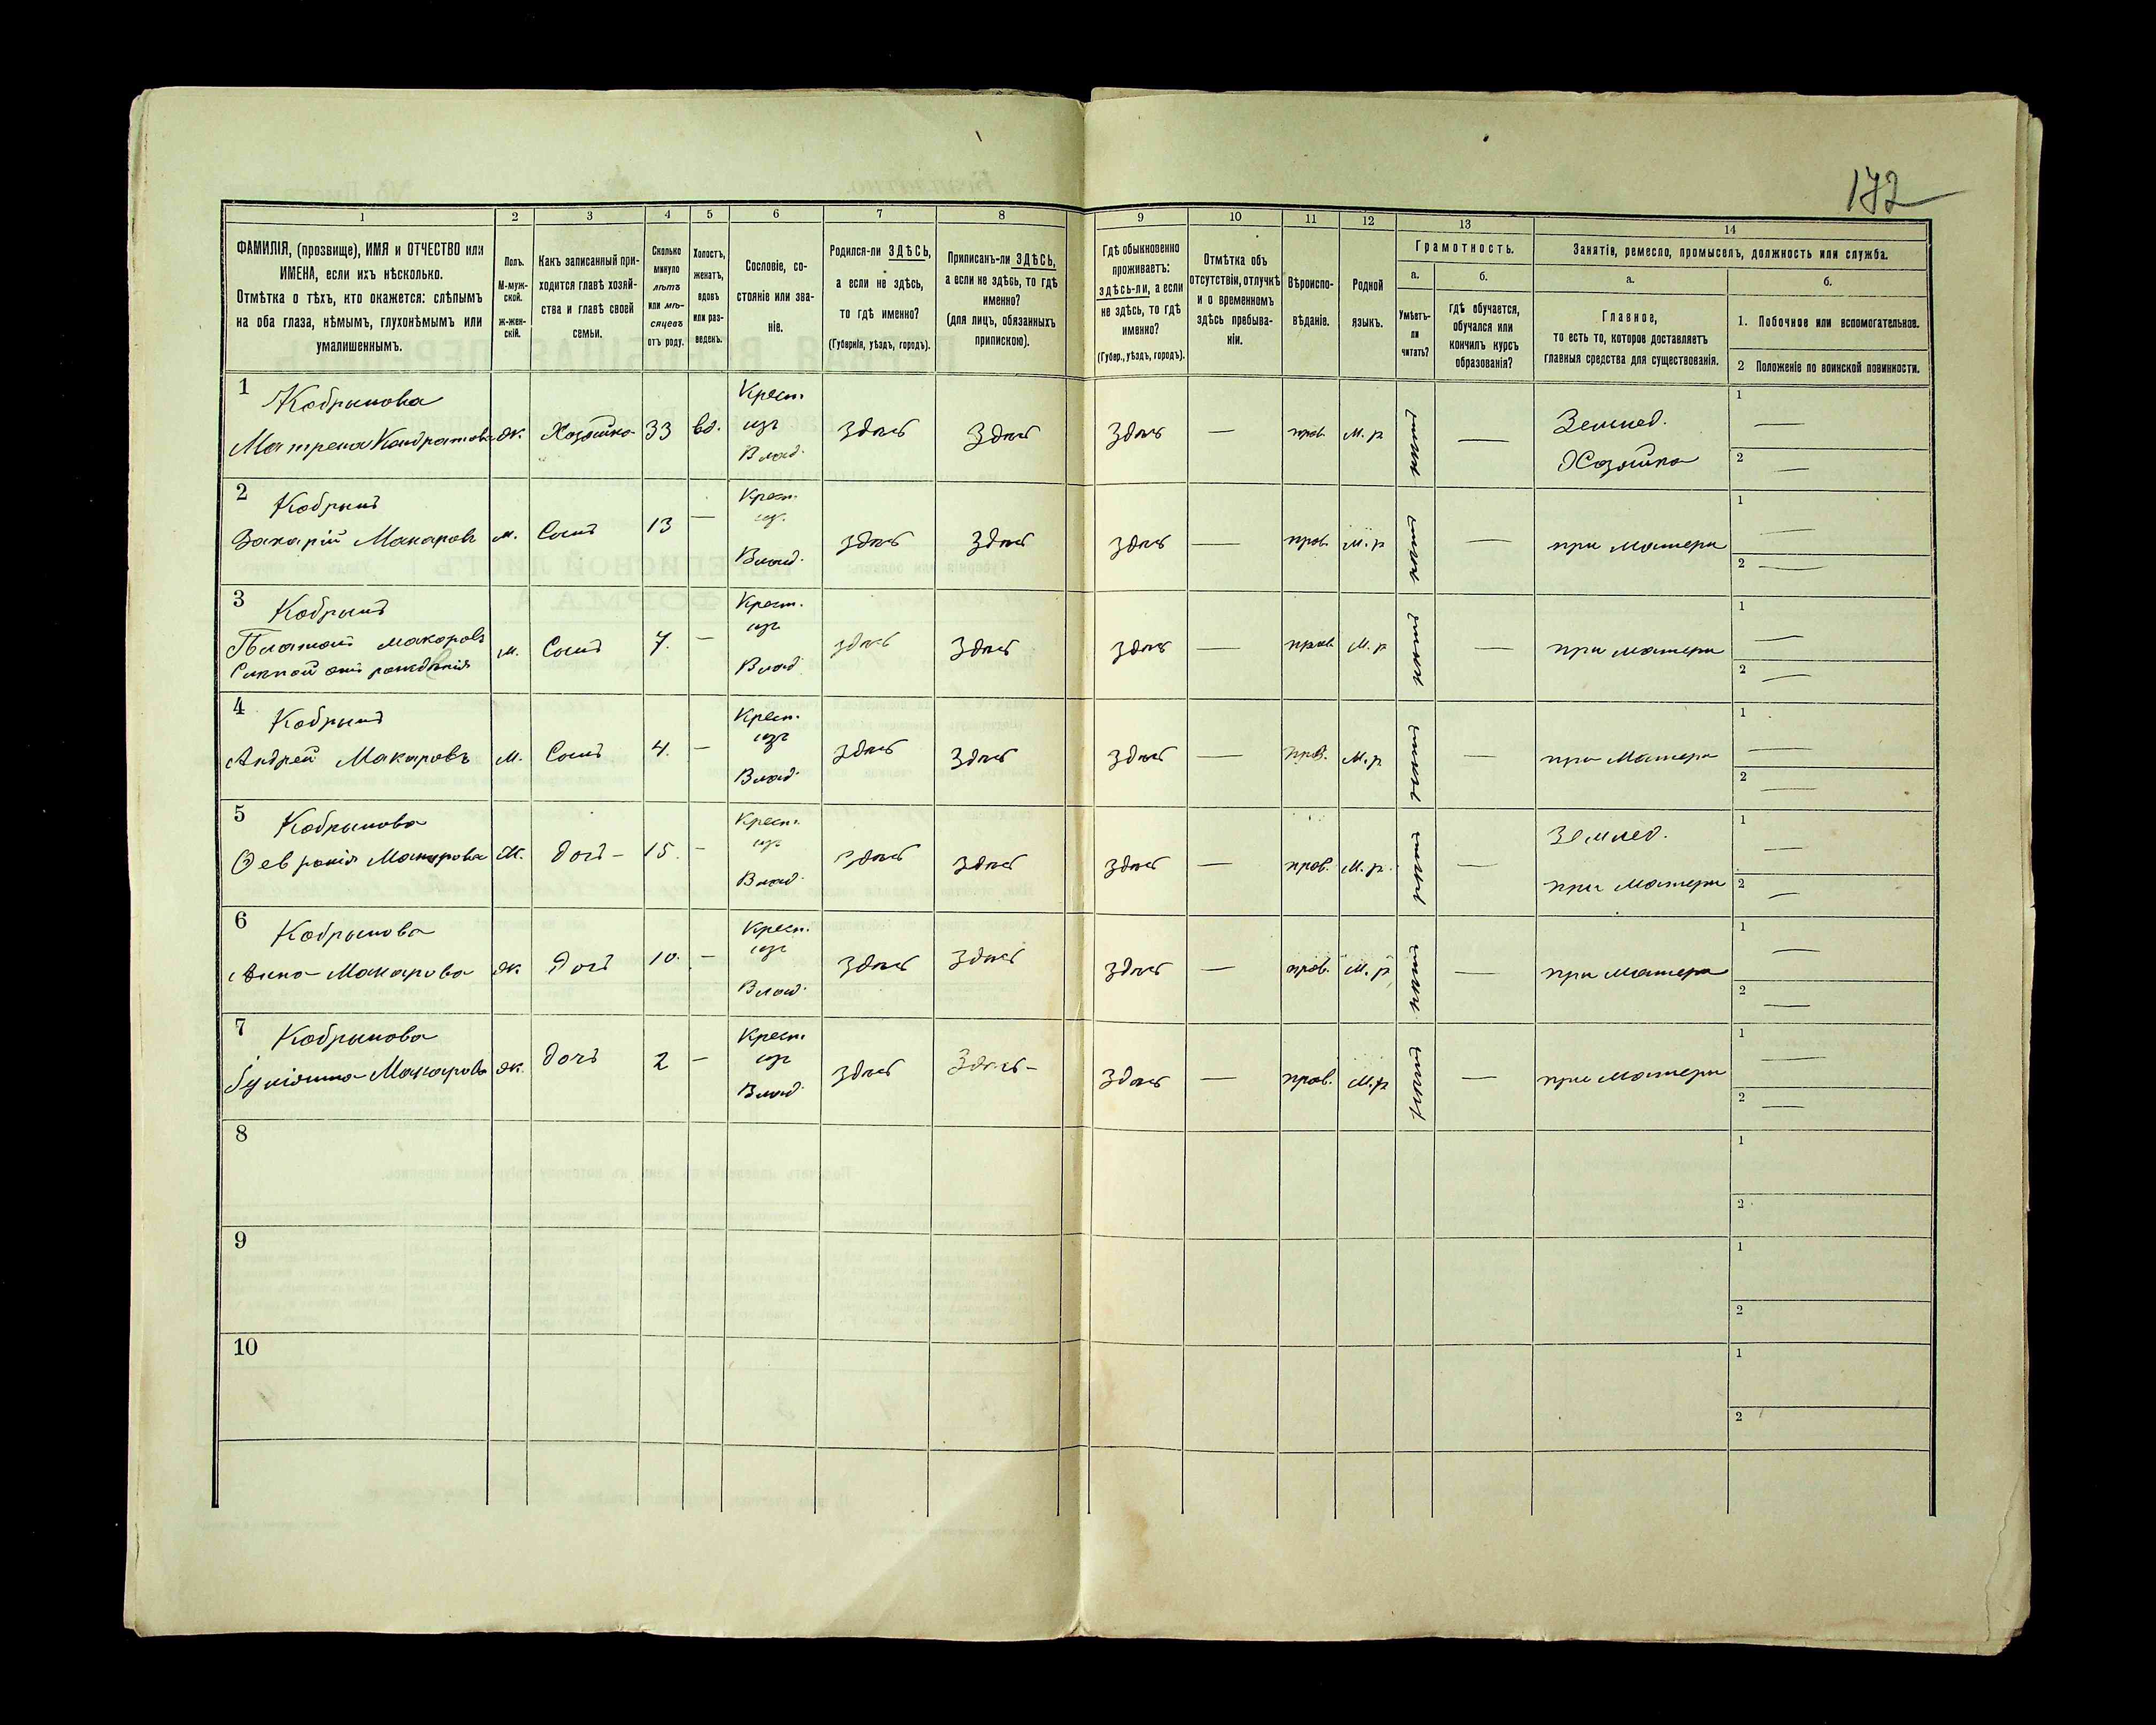 172
1 2 3 4 5 6 7 8 9 10 11 12 13 14
ФАМИЛІЯ, (прозвище), ИМЯ и ОТЧЕСТВО или
ИМЕНА, если ихъ нѣсколько.
Отмѣтка о тѣхъ, кто окажется: слѣпымъ
на оба глаза, нѣмымъ, глухонѣмымъ или
умалишеннымъ.
Полъ.
М-муж-
ской.
ж-жен-
скій.
Какъ записанный при-
ходится главѣ хозяй-
ства и главѣ своей
семьи.
Сколько
минуло
лѣтъ
или мѣ-
сяцевъ
отъ роду.
Холостъ,
женатъ,
вдовъ
или раз-
веденъ.
Сословіе, со-
стояніе или зва-
ніе.
Родился-ли ЗДѢСЬ,
а если не здѣсь,
то гдѣ именно?
(Губернія, уѣздъ, городъ).
Приписанъ-ли ЗДѢСЬ,
а если не здѣсь, то гдѣ
именно?
(для лицъ, обязанныхъ
припискою).
Гдѣ обыкновенно
проживаетъ:
здѣсь-ли, а если
не здѣсь, то гдѣ
именно?
(Губер., уѣздъ, городъ).
Отмѣтка объ
отсутствіи, отлучкѣ
и о временномъ
здѣсь пребыва-
ніи.
Вѣроиспо-
вѣданіе.
Родной
языкъ.
Грамотность.
а.
Умѣетъ-
ли
читать?
б.
Гдѣ обучается,
обучался или
кончилъ курсъ
образованія?
Занятіе, ремесло, промыселъ, должность или служба.
а.
Главное,
то есть то, которое доставляетъ
главныя средства для существованія.
б.
1. Побочное или вспомогательное.
2 Положеніе по воинской повинности.
1 Кобрынова
Матрена Кондратова ж. Хозяйка 33 вд. Крест. изъ Влад. здѣсь здѣсь здѣсь — прав. М. р нѣтъ — Землед. Хозяйка 1 — 2 —
2 Кобрынъ
Захарій Макаровъ м. Сынъ 13 — Крест. из. Влад. здѣсь здѣсь здѣсь — прав. М. р нѣтъ — при матери 1 — 2 —
3 Кобрынъ
Платонъ Макаровъ
Слѣпой отъ рожденія м. Сынъ 7. — Крест. изъ Влад. здѣсь здѣсь здѣсь — прав. М. р нѣтъ — при матери 1 — 2 —
4 Кобрынъ
Андрей Макаровъ м. Сынъ 4. — Крест. изъ Влад. здѣсь здѣсь здѣсь — прав. М. р нѣтъ — при матери 1 — 2 —
5 Кобрынова
Февронія Макарова ж. дочь — 15. — Крест. изъ Влад. здѣсь здѣсь здѣсь — прав. М. р. нѣтъ — Землед. при матери 1 — 2 —
6 Кобрынова
Анна Макарова ж. дочь 10. — Крест. изъ Влад. здѣсь здѣсь здѣсь — прав. М. р нѣтъ — при матери 1 — 2 —
7 Кобрынова
Макарова ж. дочь 2 — Крест. изъ Влад. здѣсь здѣсь — здѣсь — прав. М. р нѣтъ — при матери 1 — 2 —
8 1 2
9 1 2
10 1 2